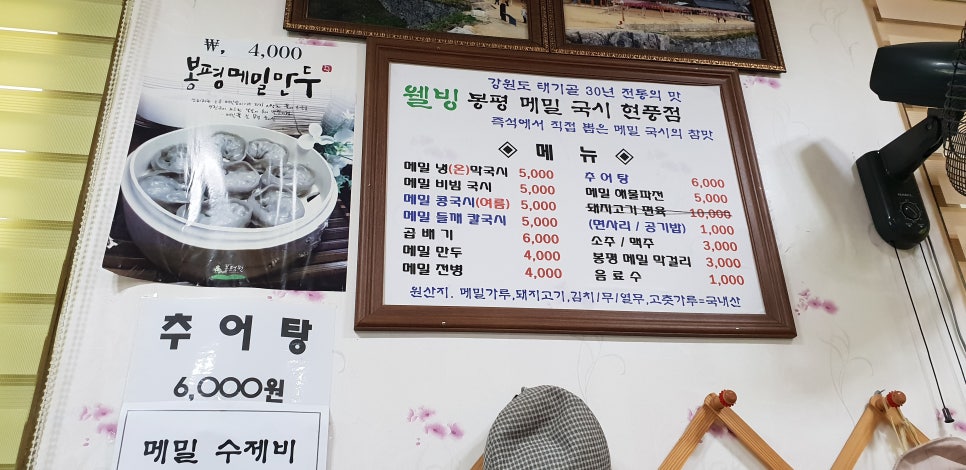 ₩, 4,000
봉평메밀만두
강원도 태기골 30년 전통의 맛
웰빙 봉평 메밀 국시 현풍점
즉석에서 직접 뽑은 메밀 국시의 참맛
메 뉴
메밀 냉(온)막국시 5,000
메밀 비빔 국시 5,000
메밀 콩국시(여름) 5,000
메밀 들깨 칼국시 5,000
곱 배 기 6,000
메밀 만두 4,000
메밀 전병 4,000
추 어 탕 6,000
메밀 해물파전 5,000
돼지고기 편육 10,000
(면사리 / 공기밥) 1,000
소주 / 맥주 3,000
봉평 메밀 막걸리 3,000
음 료 수 1,000
원산지. 메밀가루,돼지고기,김치/무/열무,고춧가루=국내산
추 어 탕
6,000원
메밀 수제비